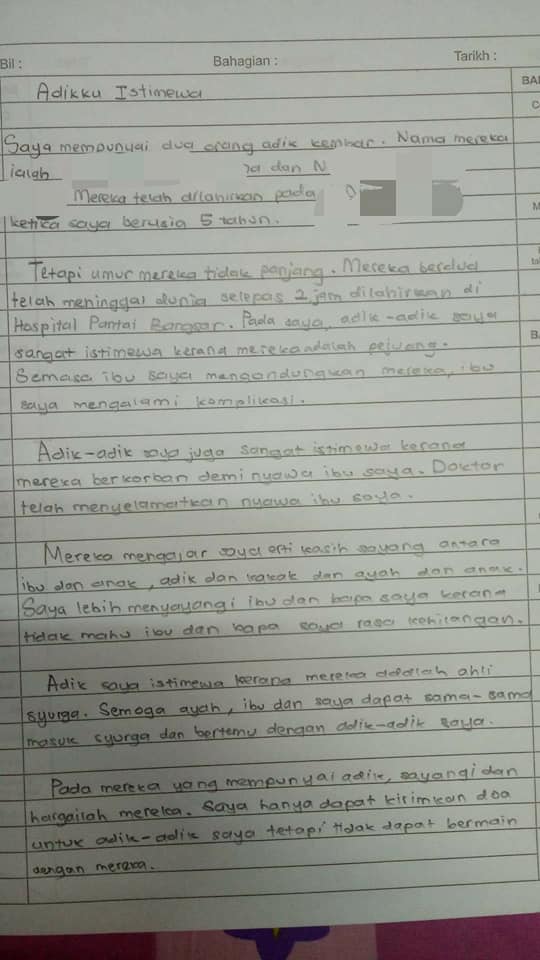 Bil :
Bahagian :
Tarikh :
BA
Adikku Istimewa
C
Saya mempunyai dua orang adik kembar. Nama mereka
ialah dan N
Mereka telah dilahirkan pada
M
ketika saya berusia 5 tahun.
Tetapi umur mereka tidak panjang. Mereka berdua
telah meninggal dunia selepas 2 jam dilahirkan di
Hospital Pantai Bangsar. Pada saya, adik-adik saya
sangat istimewa kerana mereka adalah pejuang.
Semasa ibu saya mengandungkan mereka, ibu
saya mengalami komplikasi.
Adik-adik saya juga sangat istimewa kerana
mereka berkorban demi nyawa ibu saya. Doktor
telah menyelamatkan nyawa ibu saya.
Mereka mengajar saya erti kasih sayang antara
ibu dan anak, adik dan kakak dan ayah dan anak.
Saya lebih menyayangi ibu dan bapa saya kerana
tidak mahu ibu dan bapa saya rasa kehilangan.
Adik saya istimewa kerana mereka adalah ahli
syurga. Semoga ayah, ibu dan saya dapat sama-sama
masuk syurga dan bertemu dengan adik-adik saya.
Pada mereka yang mempunyai adik, sayangi dan
hargailah mereka. Saya hanya dapat kirimkan doa
untuk adik-adik saya tetapi tidak dapat bermain
dengan mereka.